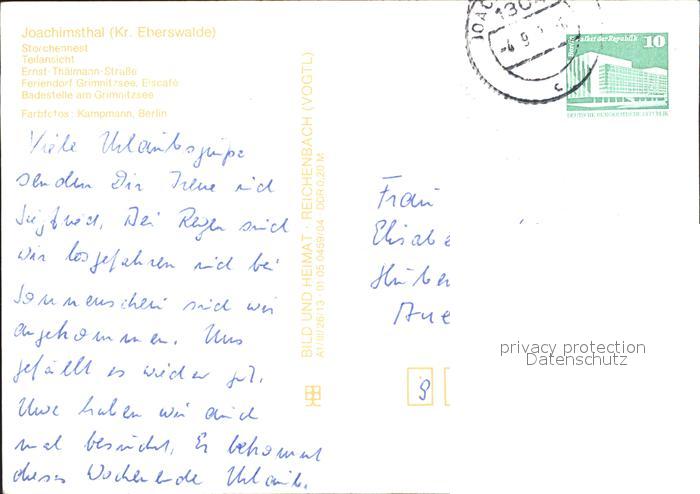 Joachimsthal (Kr. Eberswalde)
Storchennest
Teilansicht
Ernst-Thälmann-Straße
Feriendorf Grimnitzsee, Eiscafé
Badestelle am Grimnitzsee
Farbfotos: Kampmann, Berlin
Viele Urlaubsgrüße
senden Dir Irene und
Siegfried. Bei Regen sind
wir losgefahren und bei
Sonnenschein sind wir
angekommen. Uns
gefällt es wieder gut.
Uwe haben wir auch
mal besucht. Er bekommt
dieses Wochenende Urlaub.
BILD UND HEIMAT · REICHENBACH (VOGTL)
A1/III/26/13 · 01 05 0459/04 · DDR 0,20 M
Palast der Republik
10
DEUTSCHE DEMOKRATISCHE REPUBLIK
Frau
Elisabe
Aue
9
privacy protection
Datenschutz